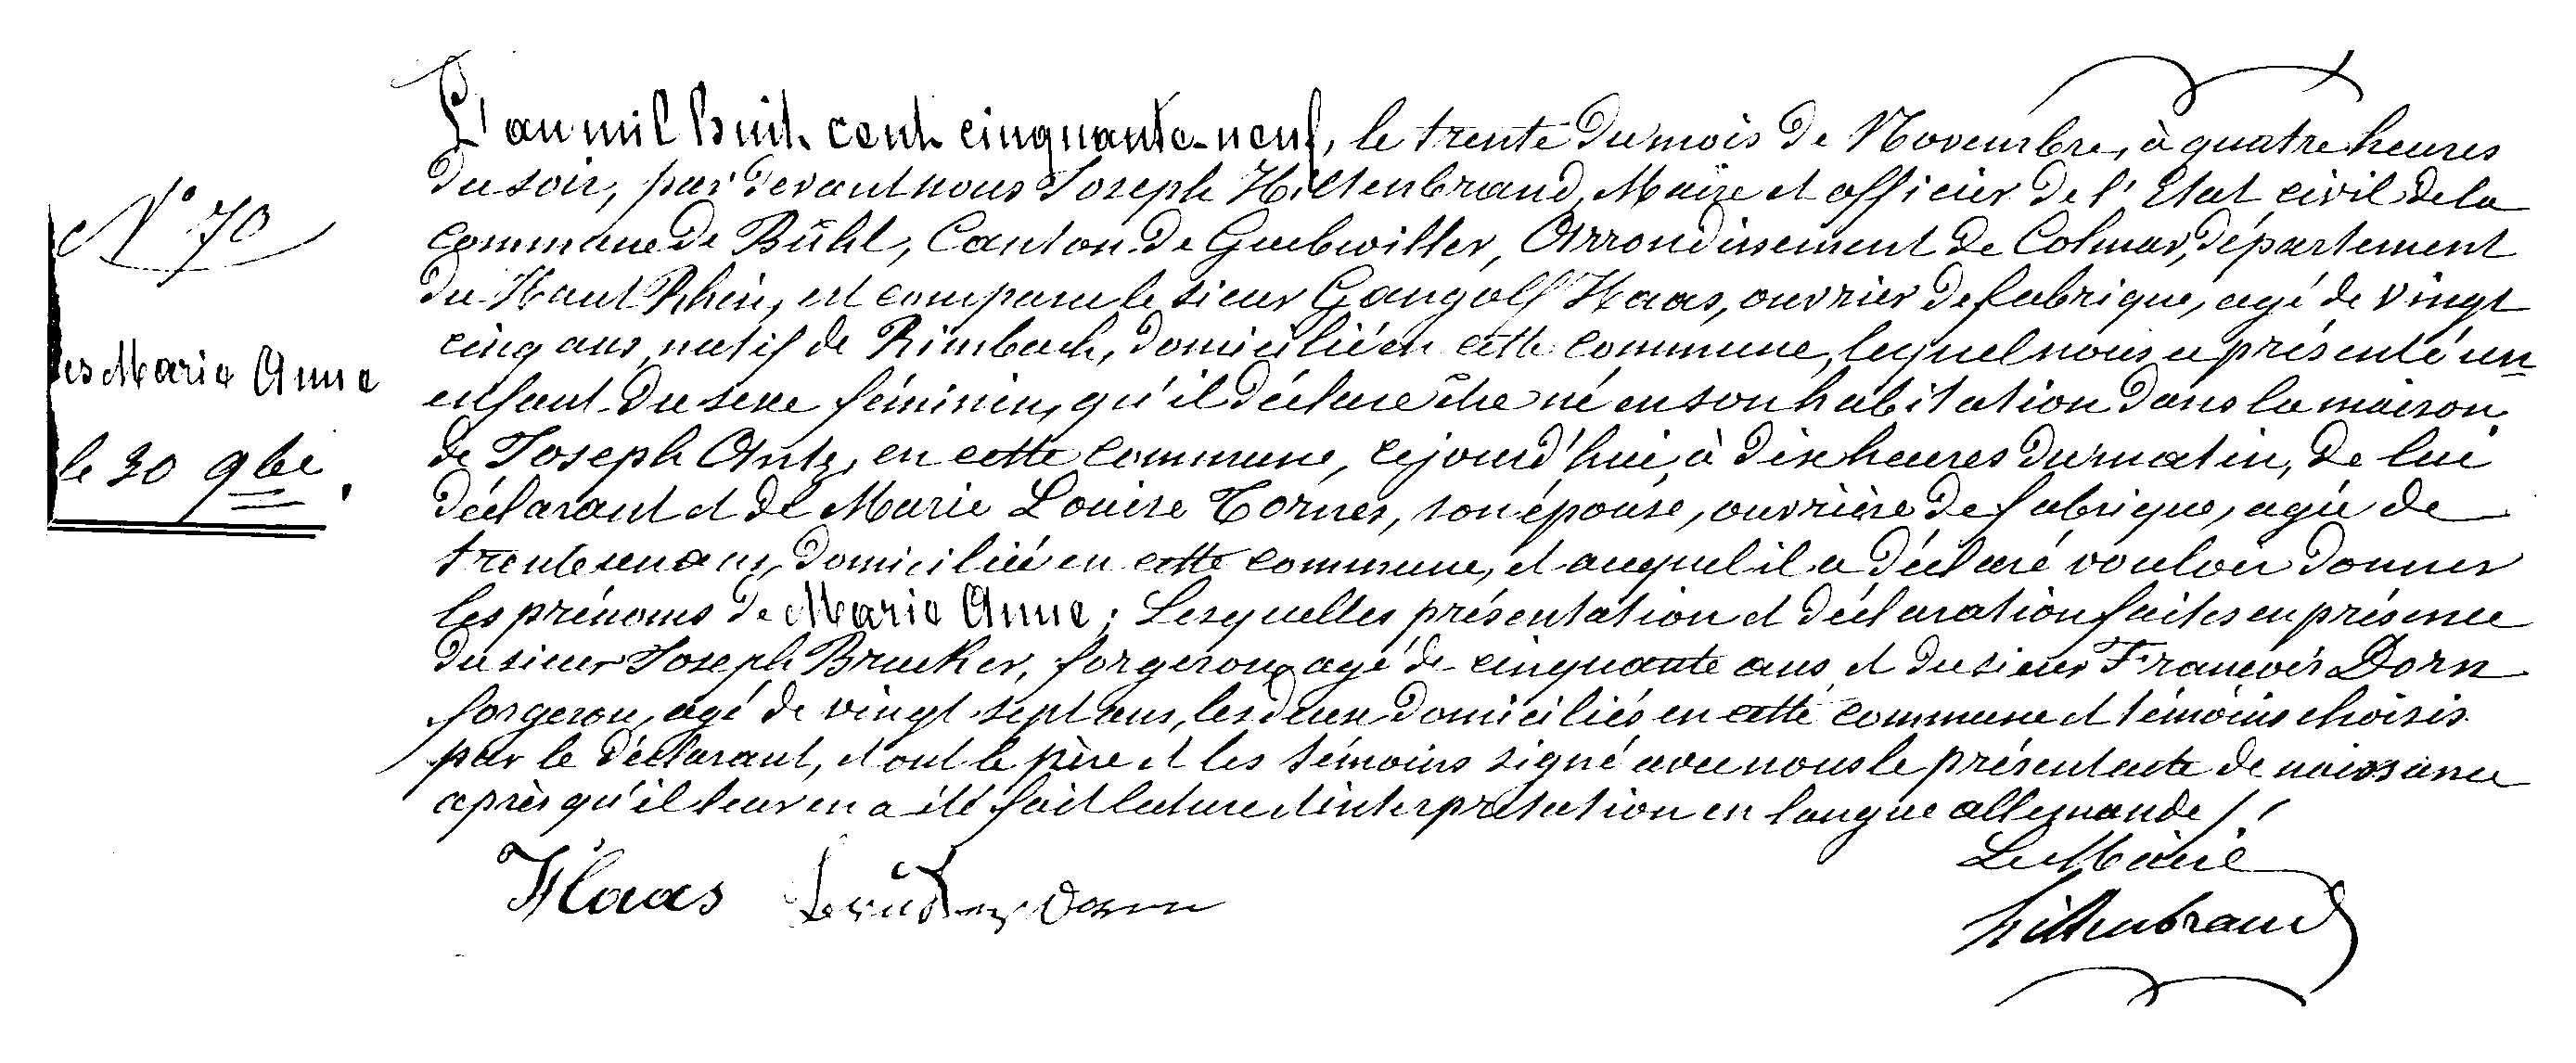 N° 70
Marie Anne
le 30 9bre.
L'an mil huit cent cinquante-neuf, le trente du mois de Novembre, à quatre heures
du soir, par devant nous Joseph Hiltenbrand, Maire et officier de l'Etat civil de la
commune de Bühl, Canton de Guebwiller, Arrondissement de Colmar, département
du Haut Rhin, est comparu le sieur Gangolf Haas, ouvrier de fabrique, agé de vingt
cinq ans, natif de Rimbach, domicilié en cette commune, lequel nous a présenté un
enfant du sexe féminin, qu'il déclare être né en son habitation dans la maison
de Joseph Antz, en cette commune, cejourd'hui à dix heures du matin, de lui
déclarant et de Marie Louise Tornes, son épouse, ouvrière de fabrique, agée de
trente un ans, domiciliée en cette commune, et auquel il a déclaré vouloir donner
les prénoms de Marie Anne; Lesquelles présentation et déclaration faites en présence
du sieur Joseph Brucker, forgeron, agé de cinquante ans et du sieur François Dorn
forgeron, agé de vingt sept ans, les deux domiciliés en cette commune et témoins choisis
par le déclarant, et ont le père et les témoins signé avec nous le présent acte de naissance
après qu'il leur en a été fait lecture et interprétation en langue allemande /.
Le Maire
Haas Brucker Dorn
hiltenbrand